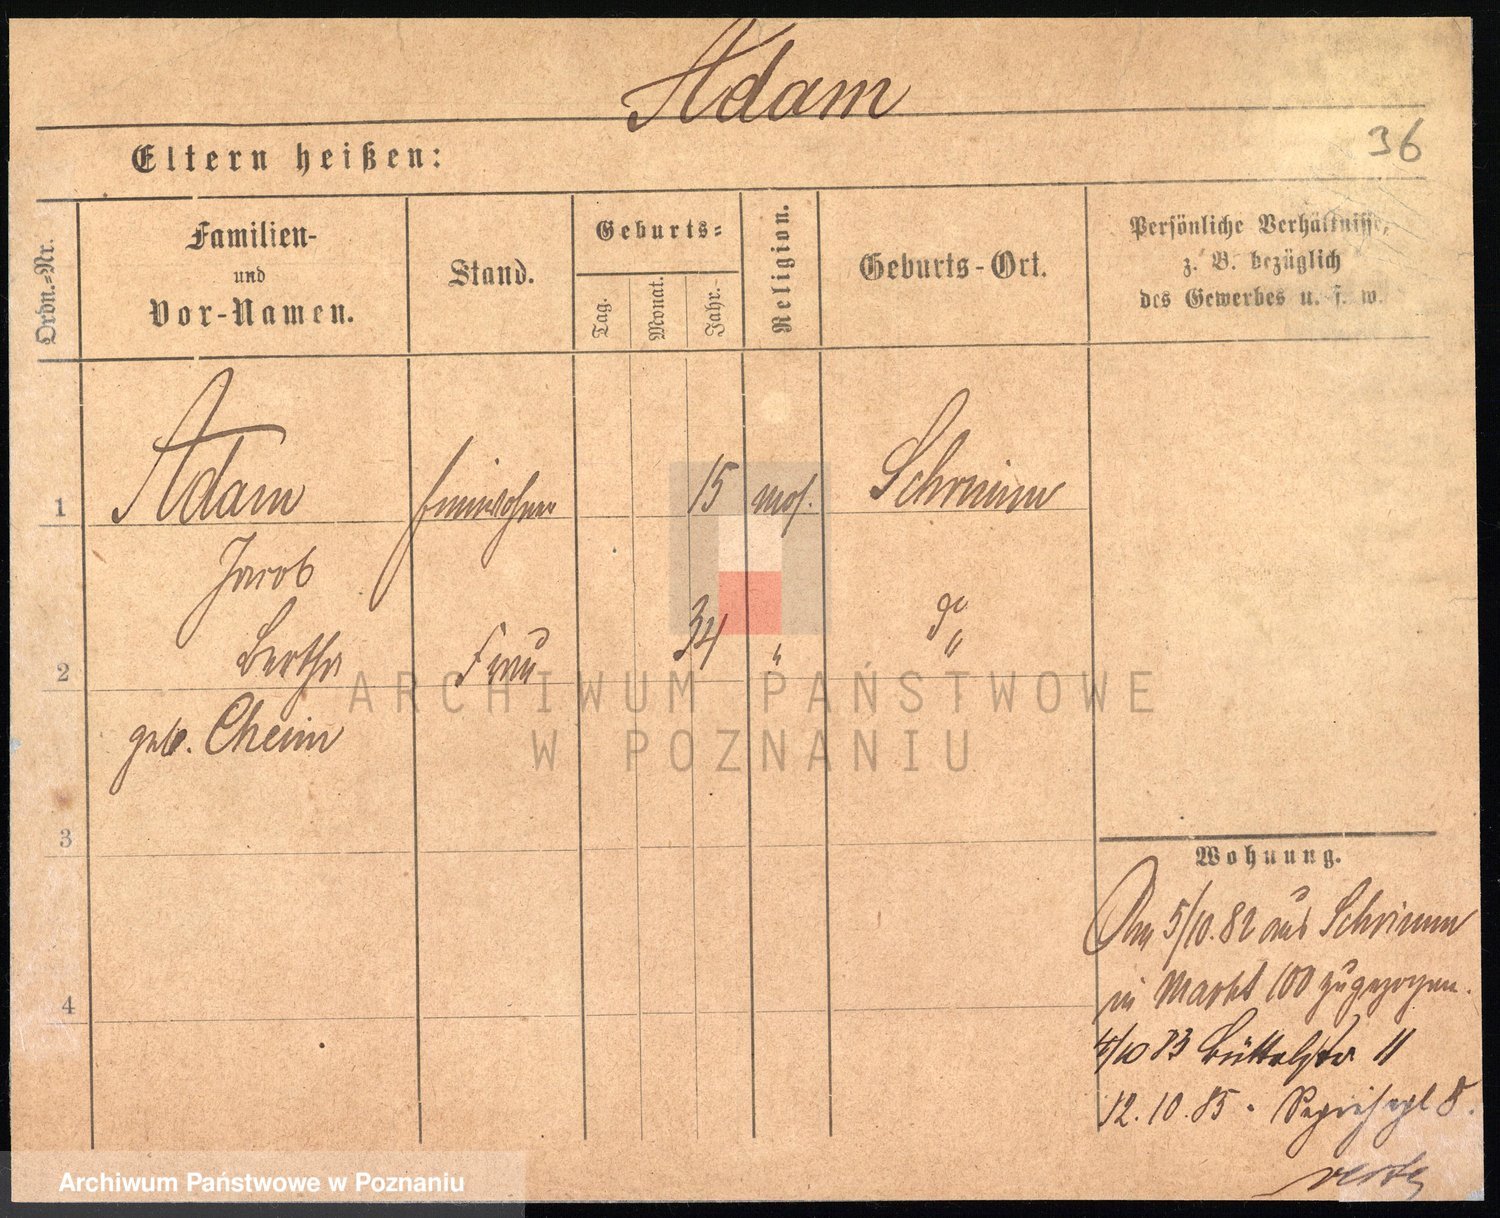 Adam
36
Eltern heißen:
Ordn.-Nr.
Familien-
und
Vor-Namen.
Stand.
Geburts-
Tag.
Monat.
Jahr.
Religion.
Geburts-Ort.
Persönliche Verhältnisse,
z. B. bezüglich
des Gewerbes u. s. w.
1 Adam Einwohner 15 mos. Schrimm
Jacob
2 Bertha Frau 34 " "
geb. Cheim
3
4
Wohnung.
Am 5/10.82 aus Schrimm
in Markt 100 zugezogen.
4/10 83 Büttelstr 11
12.10.85.
ARCHIWUM PAŃSTWOWE
W POZNANIU
Archiwum Państwowe w Poznaniu